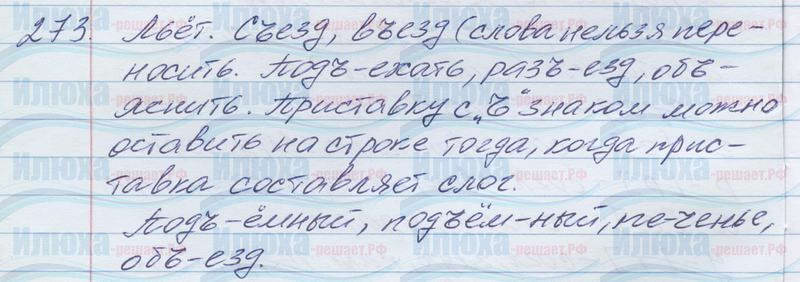 273. Льёт. Съезд, въезд (слова нельзя пере-
носить. Подъ-ехать, разъ-езд, объ-
яснить. Приставку с „ъ" знаком можно
оставить на строке тогда, когда прис-
тавка составляет слог.
Подъ-ёмный, подъём-ный, пе-ченье,
объ-езд.